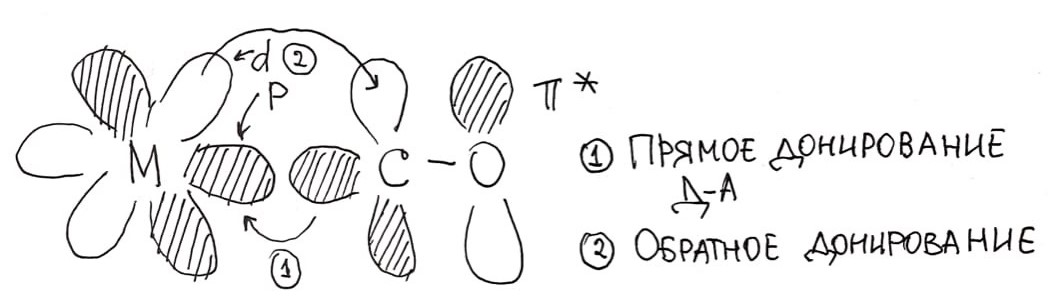 d ②
p
π*
M
C – O
①
① ПРЯМОЕ ДОНИРОВАНИЕ
Д-А
② ОБРАТНОЕ ДОНИРОВАНИЕ